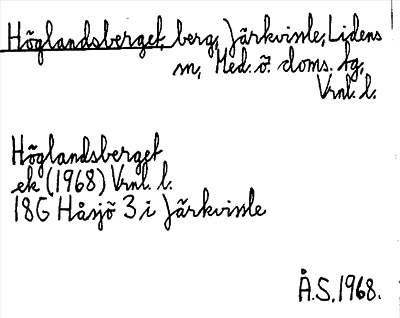 Höglandsberget, berg, Järkvissle, Lidens
sn, Med. ö. doms. tg,
Vrnl. l.
Höglandsberget
ek (1968) Vrnl. l.
18G Håsjö 3 i Järkvissle
Å.S. 1968.